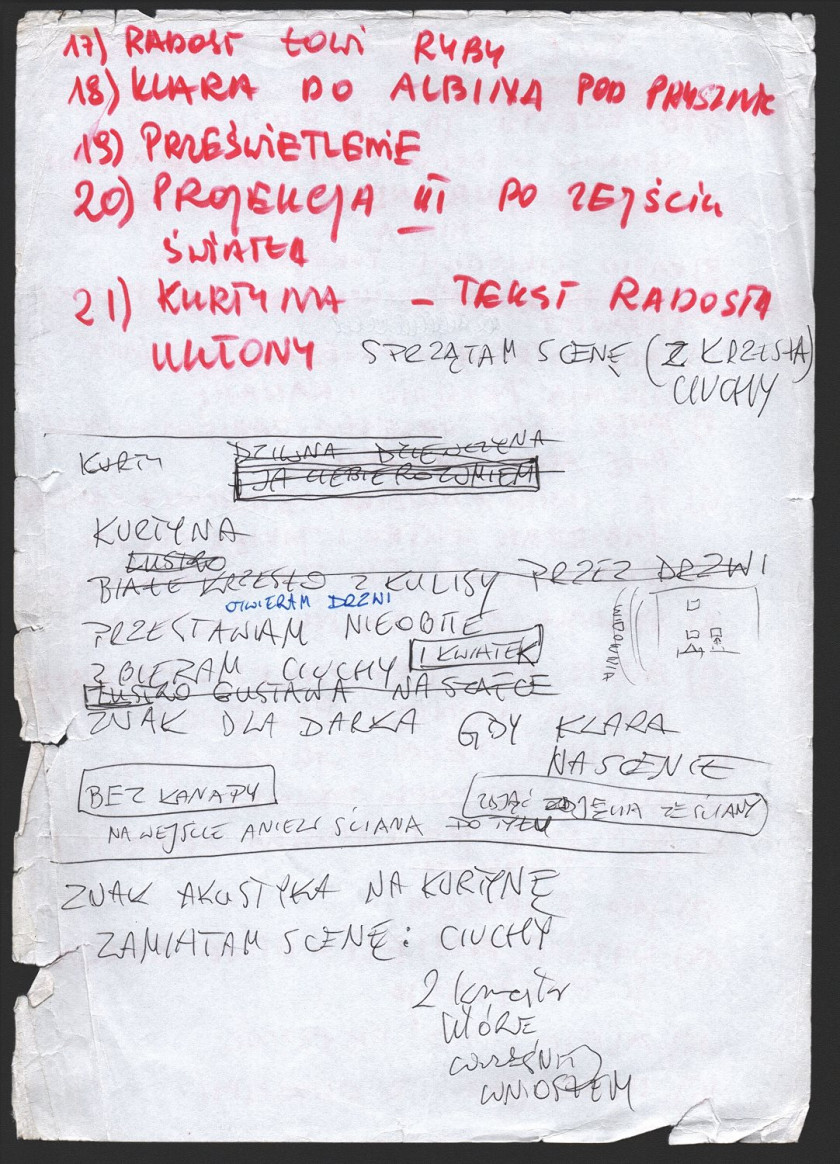 17) RADOST ŁOWI RYBY
18) KLARA DO ALBINA POD PRYSZNIC
19) PRZEŚWIETLENIE
20) PROJEKCJA III PO ZEJŚCIU
ŚWIATŁA
21) KURTYNA – TEKST RADOSTA
UKŁONY
SPRZĄTAM SCENĘ (Z KRZESŁA)
CIUCHY
DZIWNA DZIEWCZYNA
KURTY
JA CIEBIE ROZUMIEM
KURTYNA
LUSTRO
BIAŁE KRZESŁO Z KULISY PRZEZ DRZWI
OTWIERAM DRZWI
PRZESTAWIAM NIEOBITE
WIDOWNIA
ZBIERAM CIUCHY I KWIATEK
LUSTRO GUSTAWA NA SZAFCE
ZNAK DLA DARKA GDY KLARA
NA SCENIE
BEZ KANAPY
ZDJĄĆ ZDJĘCIA ZE ŚCIANY
NA WEJŚCIE ANIELI ŚCIANA DO TYŁU
ZNAK AKUSTYKA NA KURTYNĘ
ZAMIATAM SCENĘ: CIUCHY
2 kwiatki
KTÓRE
WCZEŚNIEJ
WNIOSŁEM